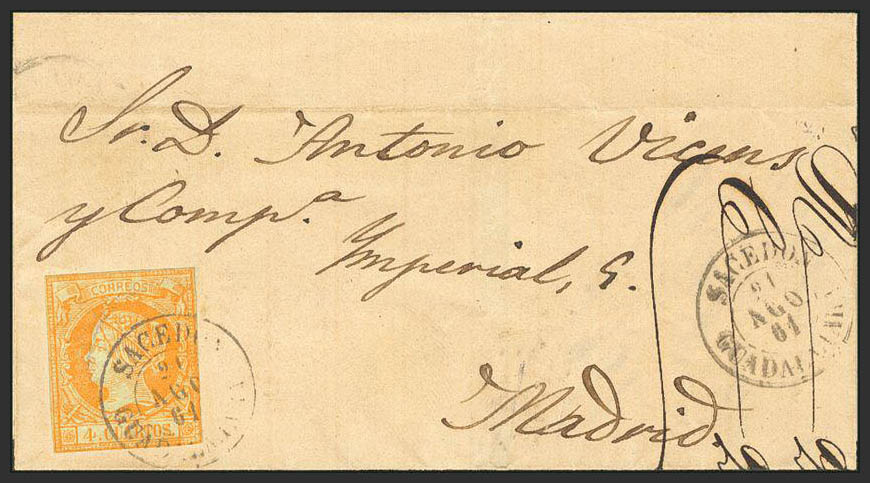 Sr. D. Antonio Vicens
y Comp.ª
Imperial,
Madrid
CORREOS
4 CUARTOS.
SACEDON
AGO
61
SACEDON
21
AGO
61
GUADALAJARA